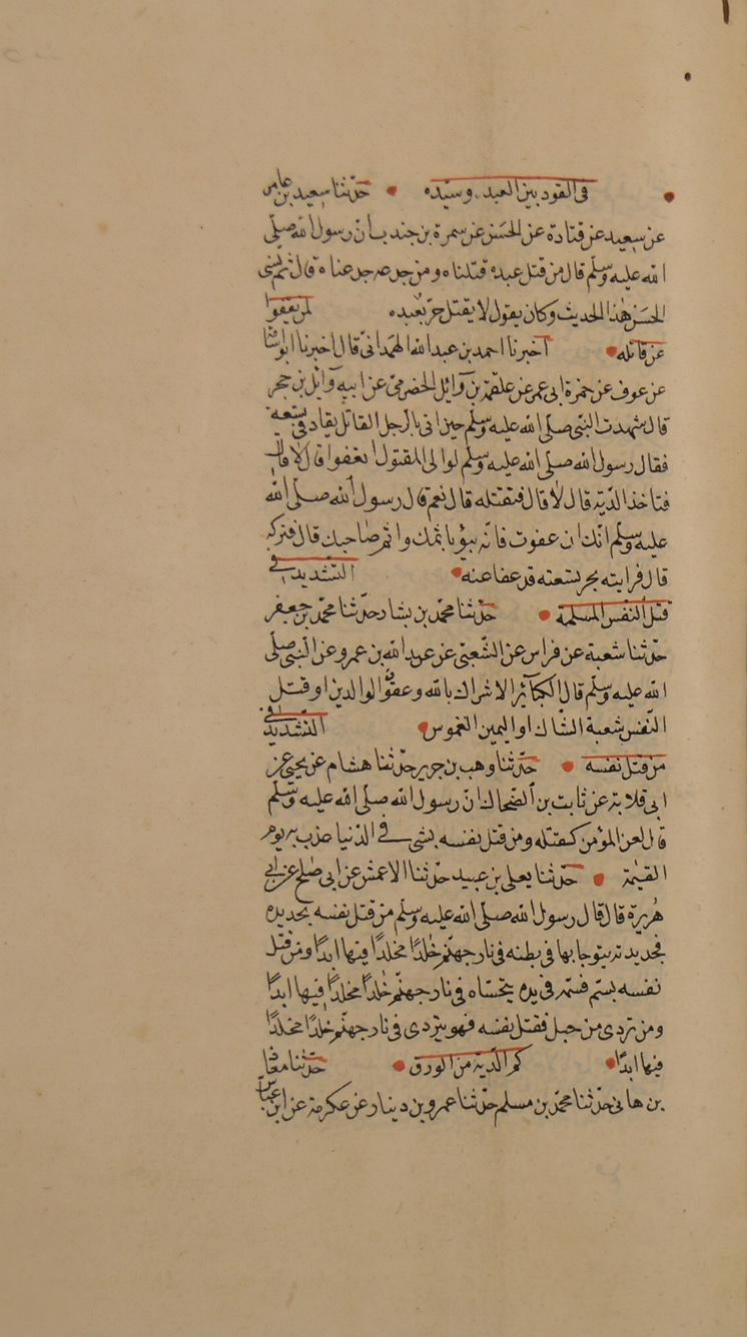 في القود بين العبد وسيده حدثنا سعيد بن عامر
عن سعيد عن قتادة عن الحسن عن سمرة بن جندب أن رسول الله صلى
الله عليه وسلم قال من قتل عبده قتلناه ومن جدعه جدعناه قال ثم نسي
الحسن هذا الحديث وكان يقول لا يقتل حر بعبده لمن يعفوا
عن قاتله اخبرنا احمد بن عبد الله الهمداني قال اخبرنا ابو اسا
عن عوف عن حمزة ابي عمر عن علقمة بن وآئل الحضرمي عن ابيه وآئل بن حجر
قال شهدت النبي صلى الله عليه وسلم حين اتى بالرجل القاتل يقاد في نسعة
فقال رسول الله صلى الله عليه وسلم لوالى المقتول اتعفوا قال لا قال
فتاخذ الدية قال لا قال فتقتله قال نعم قال رسول الله صلى الله
عليه وسلم انك ان عفوت فانه يبؤ باثمك واثم صاحبك قال فتركه
قال فرايته يجر نسعته قد عفا عنه التشديد في
قتل النفس المسلمة حدثنا محمد بن بشار حدثنا محمد بن جعفر
حدثنا شعبة عن فراس عن الشعبي عن عبد الله بن عمرو عن النبي صلى
الله عليه وسلم قال الكبآئر الاشراك بالله وعقوق الوالدين او قتل
النفس شعبة الشاك او اليمين الغموس التشديد في
من قتل نفسه حدثنا وهب بن جرير حدثنا هشام عن يحيى عن
ابي قلابة عن ثابت بن الضحاك ان رسول الله صلى الله عليه وسلم
قال لعن المؤمن كقتله ومن قتل نفسه بشي في الدنيا عذب به يوم
القيمة حدثنا يعلى بن عبيد حدثنا الاعمش عن ابي صلح عن ابي
هريرة قال قال رسول الله صلى الله عليه وسلم من قتل نفسه بحديده
فحديدته يتوجا بها في بطنه في نار جهنم خلدا مخلدا فيها ابدا ومن قتل
نفسه بسم فسمه في يده يتحساه في نار جهنم خلدا مخلدا فيها ابدا
ومن تردى من جبل فقتل نفسه فهو يتردى في نار جهنم خلدا مخلدا
فيها ابدا كم الدية من الورق حدثنا معاذ
بن هانى حدثنا محمد بن مسلم حدثنا عمرو بن دينار عن عكرمة عن ابن عباس